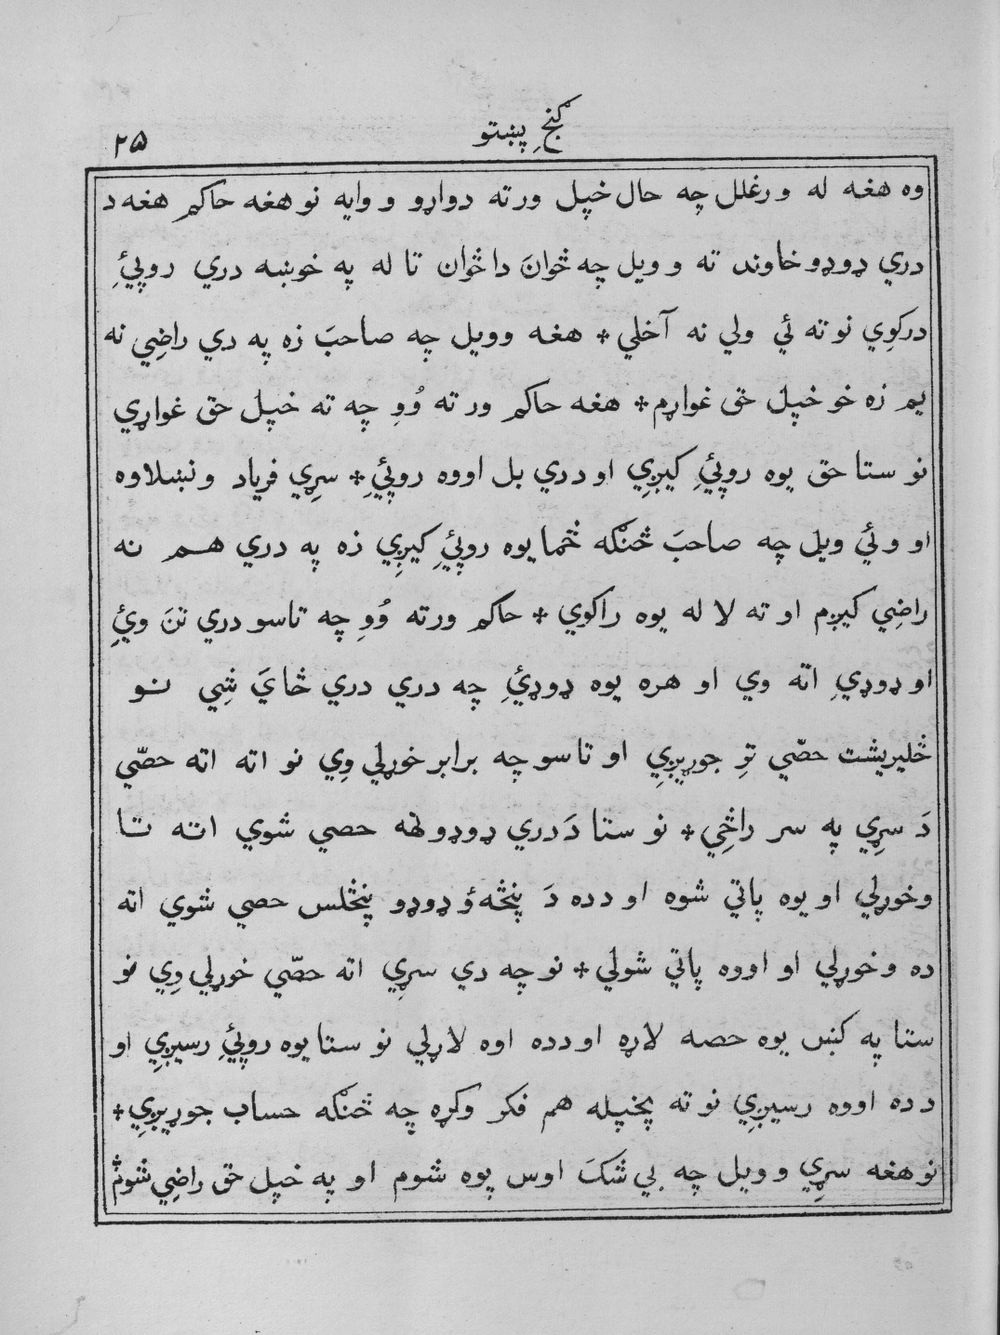 گنجِ پښتو
۲۵
وه هغه له ورغلل چه حال خپل ورته دواړو ووايه نو هغه حاکم هغه د
دري ډوډو خاوند ته وويل چه ځوانَ دا ځوان تا له په خوښه دري روپئ
درکوِي نو ته ئي ولي نه آخلي * هغه وويل چه صاحبَ زه په دري راضِي نه
يم زه خو خپل حق غواړم * هغه حاکم ورته وُوِ چه ته خپل حق غواړي
نو ستا حق يوه روپئ کيږِي او دري بل اووه روپئ * سړِي فرياد ونښلاوه
او وئي ويل چه صاحبَ څنګه ځما يوه روپئ کيږِي زه په دري هم نه
راضِي کيږم او ته لا له يوه راکوي * حاکم ورته وُوِ چه تاسو دري تنَ وئ
او ډوډيِ اته وي او هره يوه ډوډئ چه دري دري ځايَ شِي نو
څليريشت حصّي ترِ جوړيږِي او تاسو چه برابر خوړلي وِي نو اته اته حصّي
دَ سړِي په سر راځِي * نو ستا دَ دري ډوډو نهه حصي شوي اته تا
وخوړلي او يوه پاتي شوه او دده دَ پنځهؤ ډوډو پنځلس حصي شوي اته
ده وخوړلي او اووه پاتي شولي * نو چه دي سړِي اته حصّي خوړلي وِي نو
ستا په کښ يوه حصه لاړه او دده اوه لاړلي نو ستا يوه روپئ رسيږِي او
دده اووه رسيږِي نو ته پخپله هم فکر وکړه چه څنګه حساب جوړيږِي *
نو هغه سړِي وويل چه بي شکَ اوس پوه شوم او په خپل حق راضِي شوم *